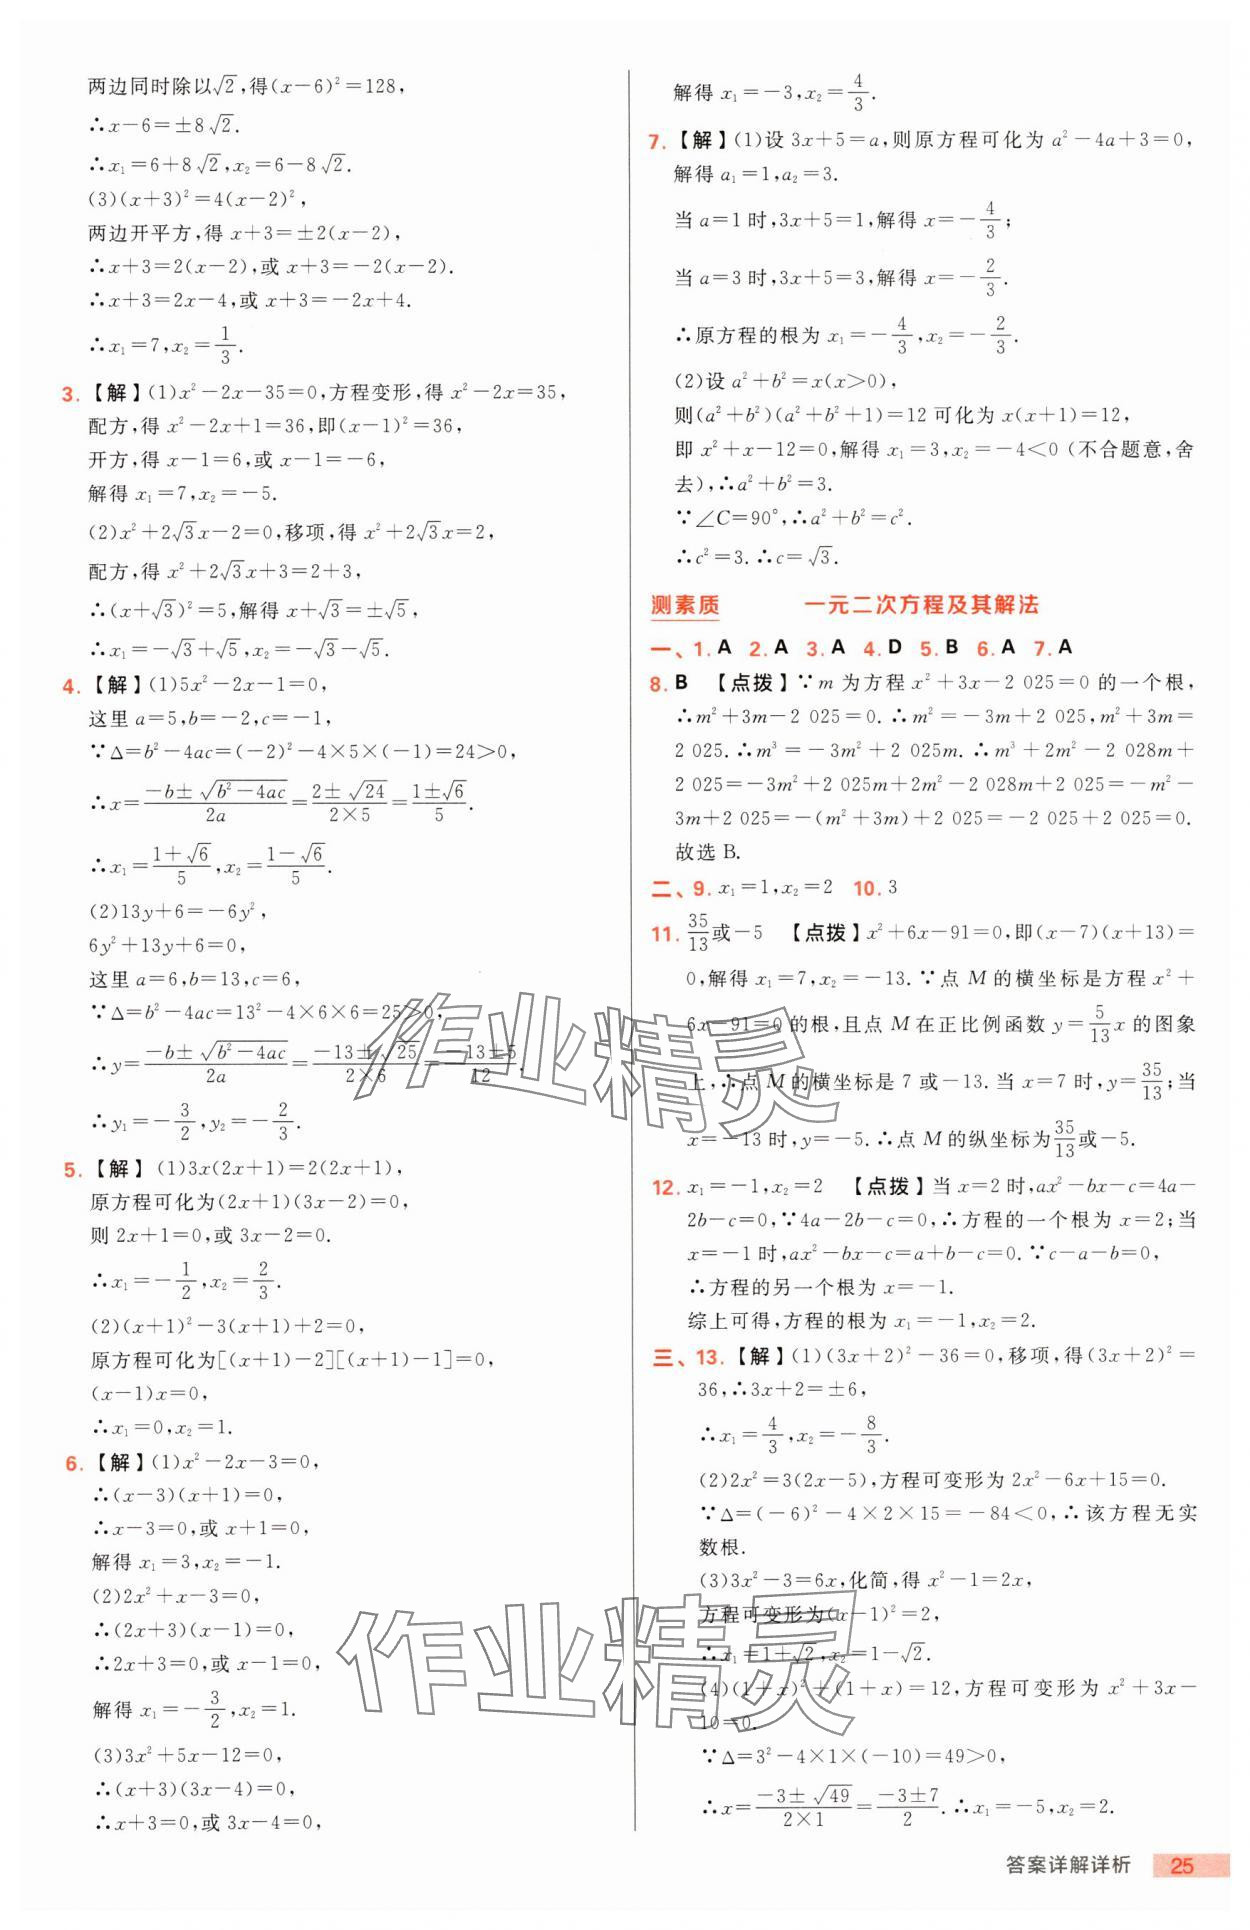 两边同时除以√2,得(x-6)²=128,
∴x-6=±8√2.
∴x₁=6+8√2,x₂=6-8√2.
(3)(x+3)²=4(x-2)²,
两边开平方,得 x+3=±2(x-2),
∴x+3=2(x-2),或 x+3=-2(x-2).
∴x+3=2x-4,或 x+3=-2x+4.
∴x₁=7,x₂=1/3.
3.【解】(1)x²-2x-35=0,方程变形,得 x²-2x=35,
配方,得 x²-2x+1=36,即(x-1)²=36,
开方,得 x-1=6,或 x-1=-6,
解得 x₁=7,x₂=-5.
(2)x²+2√3x-2=0,移项,得 x²+2√3x=2,
配方,得 x²+2√3x+3=2+3,
∴(x+√3)²=5,解得 x+√3=±√5,
∴x₁=-√3+√5,x₂=-√3-√5.
4.【解】(1)5x²-2x-1=0,
这里 a=5,b=-2,c=-1,
∵Δ=b²-4ac=(-2)²-4×5×(-1)=24>0,
∴x=(-b±√(b²-4ac))/2a=(2±√24)/(2×5)=(1±√6)/5.
∴x₁=(1+√6)/5,x₂=(1-√6)/5.
(2)13y+6=-6y²,
6y²+13y+6=0,
这里 a=6,b=13,c=6,
∵Δ=b²-4ac=13²-4×6×6=25>0,
∴y=(-b±√(b²-4ac))/2a=(-13±√25)/(2×6)=(-13±5)/12,
∴y₁=-3/2,y₂=-2/3.
5.【解】(1)3x(2x+1)=2(2x+1),
原方程可化为(2x+1)(3x-2)=0,
则 2x+1=0,或 3x-2=0.
∴x₁=-1/2,x₂=2/3.
(2)(x+1)²-3(x+1)+2=0,
原方程可化为[(x+1)-2][(x+1)-1]=0,
(x-1)x=0,
∴x₁=0,x₂=1.
6.【解】(1)x²-2x-3=0,
∴(x-3)(x+1)=0,
∴x-3=0,或 x+1=0,
解得 x₁=3,x₂=-1.
(2)2x²+x-3=0,
∴(2x+3)(x-1)=0,
∴2x+3=0,或 x-1=0,
解得 x₁=-3/2,x₂=1.
(3)3x²+5x-12=0,
∴(x+3)(3x-4)=0,
∴x+3=0,或 3x-4=0,
解得 x₁=-3,x₂=4/3.
7.【解】(1)设 3x+5=a,则原方程可化为 a²-4a+3=0,
解得 a₁=1,a₂=3.
当 a=1 时,3x+5=1,解得 x=-4/3;
当 a=3 时,3x+5=3,解得 x=-2/3.
∴原方程的根为 x₁=-4/3,x₂=-2/3.
(2)设 a²+b²=x(x>0),
则(a²+b²)(a²+b²+1)=12 可化为 x(x+1)=12,
即 x²+x-12=0,解得 x₁=3,x₂=-4<0(不合题意,舍
去),∴a²+b²=3.
∵∠C=90°,∴a²+b²=c².
∴c²=3.∴c=√3.
测素质 一元二次方程及其解法
一、1. A 2. A 3. A 4. D 5. B 6. A 7. A
8. B 【点拨】∵m 为方程 x²+3x-2 025=0 的一个根,
∴m²+3m-2 025=0.∴m²=-3m+2 025,m²+3m=
2 025.∴m³=-3m²+2 025m.∴m³+2m²-2 028m+
2 025=-3m²+2 025m+2m²-2 028m+2 025=-m²-
3m+2 025=-(m²+3m)+2 025=-2 025+2 025=0.
故选 B.
二、9. x₁=1,x₂=2 10. 3
11. 35/13或-5 【点拨】x²+6x-91=0,即(x-7)(x+13)=
0,解得 x₁=7,x₂=-13.∵点 M 的横坐标是方程 x²+
6x-91=0 的根,且点 M 在正比例函数 y=5/13x 的图象
上,∴点 M 的横坐标是 7 或-13.当 x=7 时,y=35/13;当
x=-13 时,y=-5.∴点 M 的纵坐标为35/13或-5.
12. x₁=-1,x₂=2 【点拨】当 x=2 时,ax²-bx-c=4a-
2b-c=0,∵4a-2b-c=0,∴方程的一个根为 x=2;当
x=-1 时,ax²-bx-c=a+b-c=0.∵c-a-b=0,
∴方程的另一个根为 x=-1.
综上可得,方程的根为 x₁=-1,x₂=2.
三、13.【解】(1)(3x+2)²-36=0,移项,得(3x+2)²=
36,∴3x+2=±6,
∴x₁=4/3,x₂=-8/3.
(2)2x²=3(2x-5),方程可变形为 2x²-6x+15=0.
∵Δ=(-6)²-4×2×15=-84<0,∴该方程无实
数根.
(3)3x²-3=6x,化简,得 x²-1=2x,
方程可变形为(x-1)²=2,
∴x₁=1+√2,x₂=1-√2.
(4)(1+x)²+(1+x)=12,方程可变形为 x²+3x-
10=0.
∵Δ=3²-4×1×(-10)=49>0,
∴x=(-3±√49)/(2×1)=(-3±7)/2.∴x₁=-5,x₂=2.
作业精灵
作业精灵
答案详解详析 25